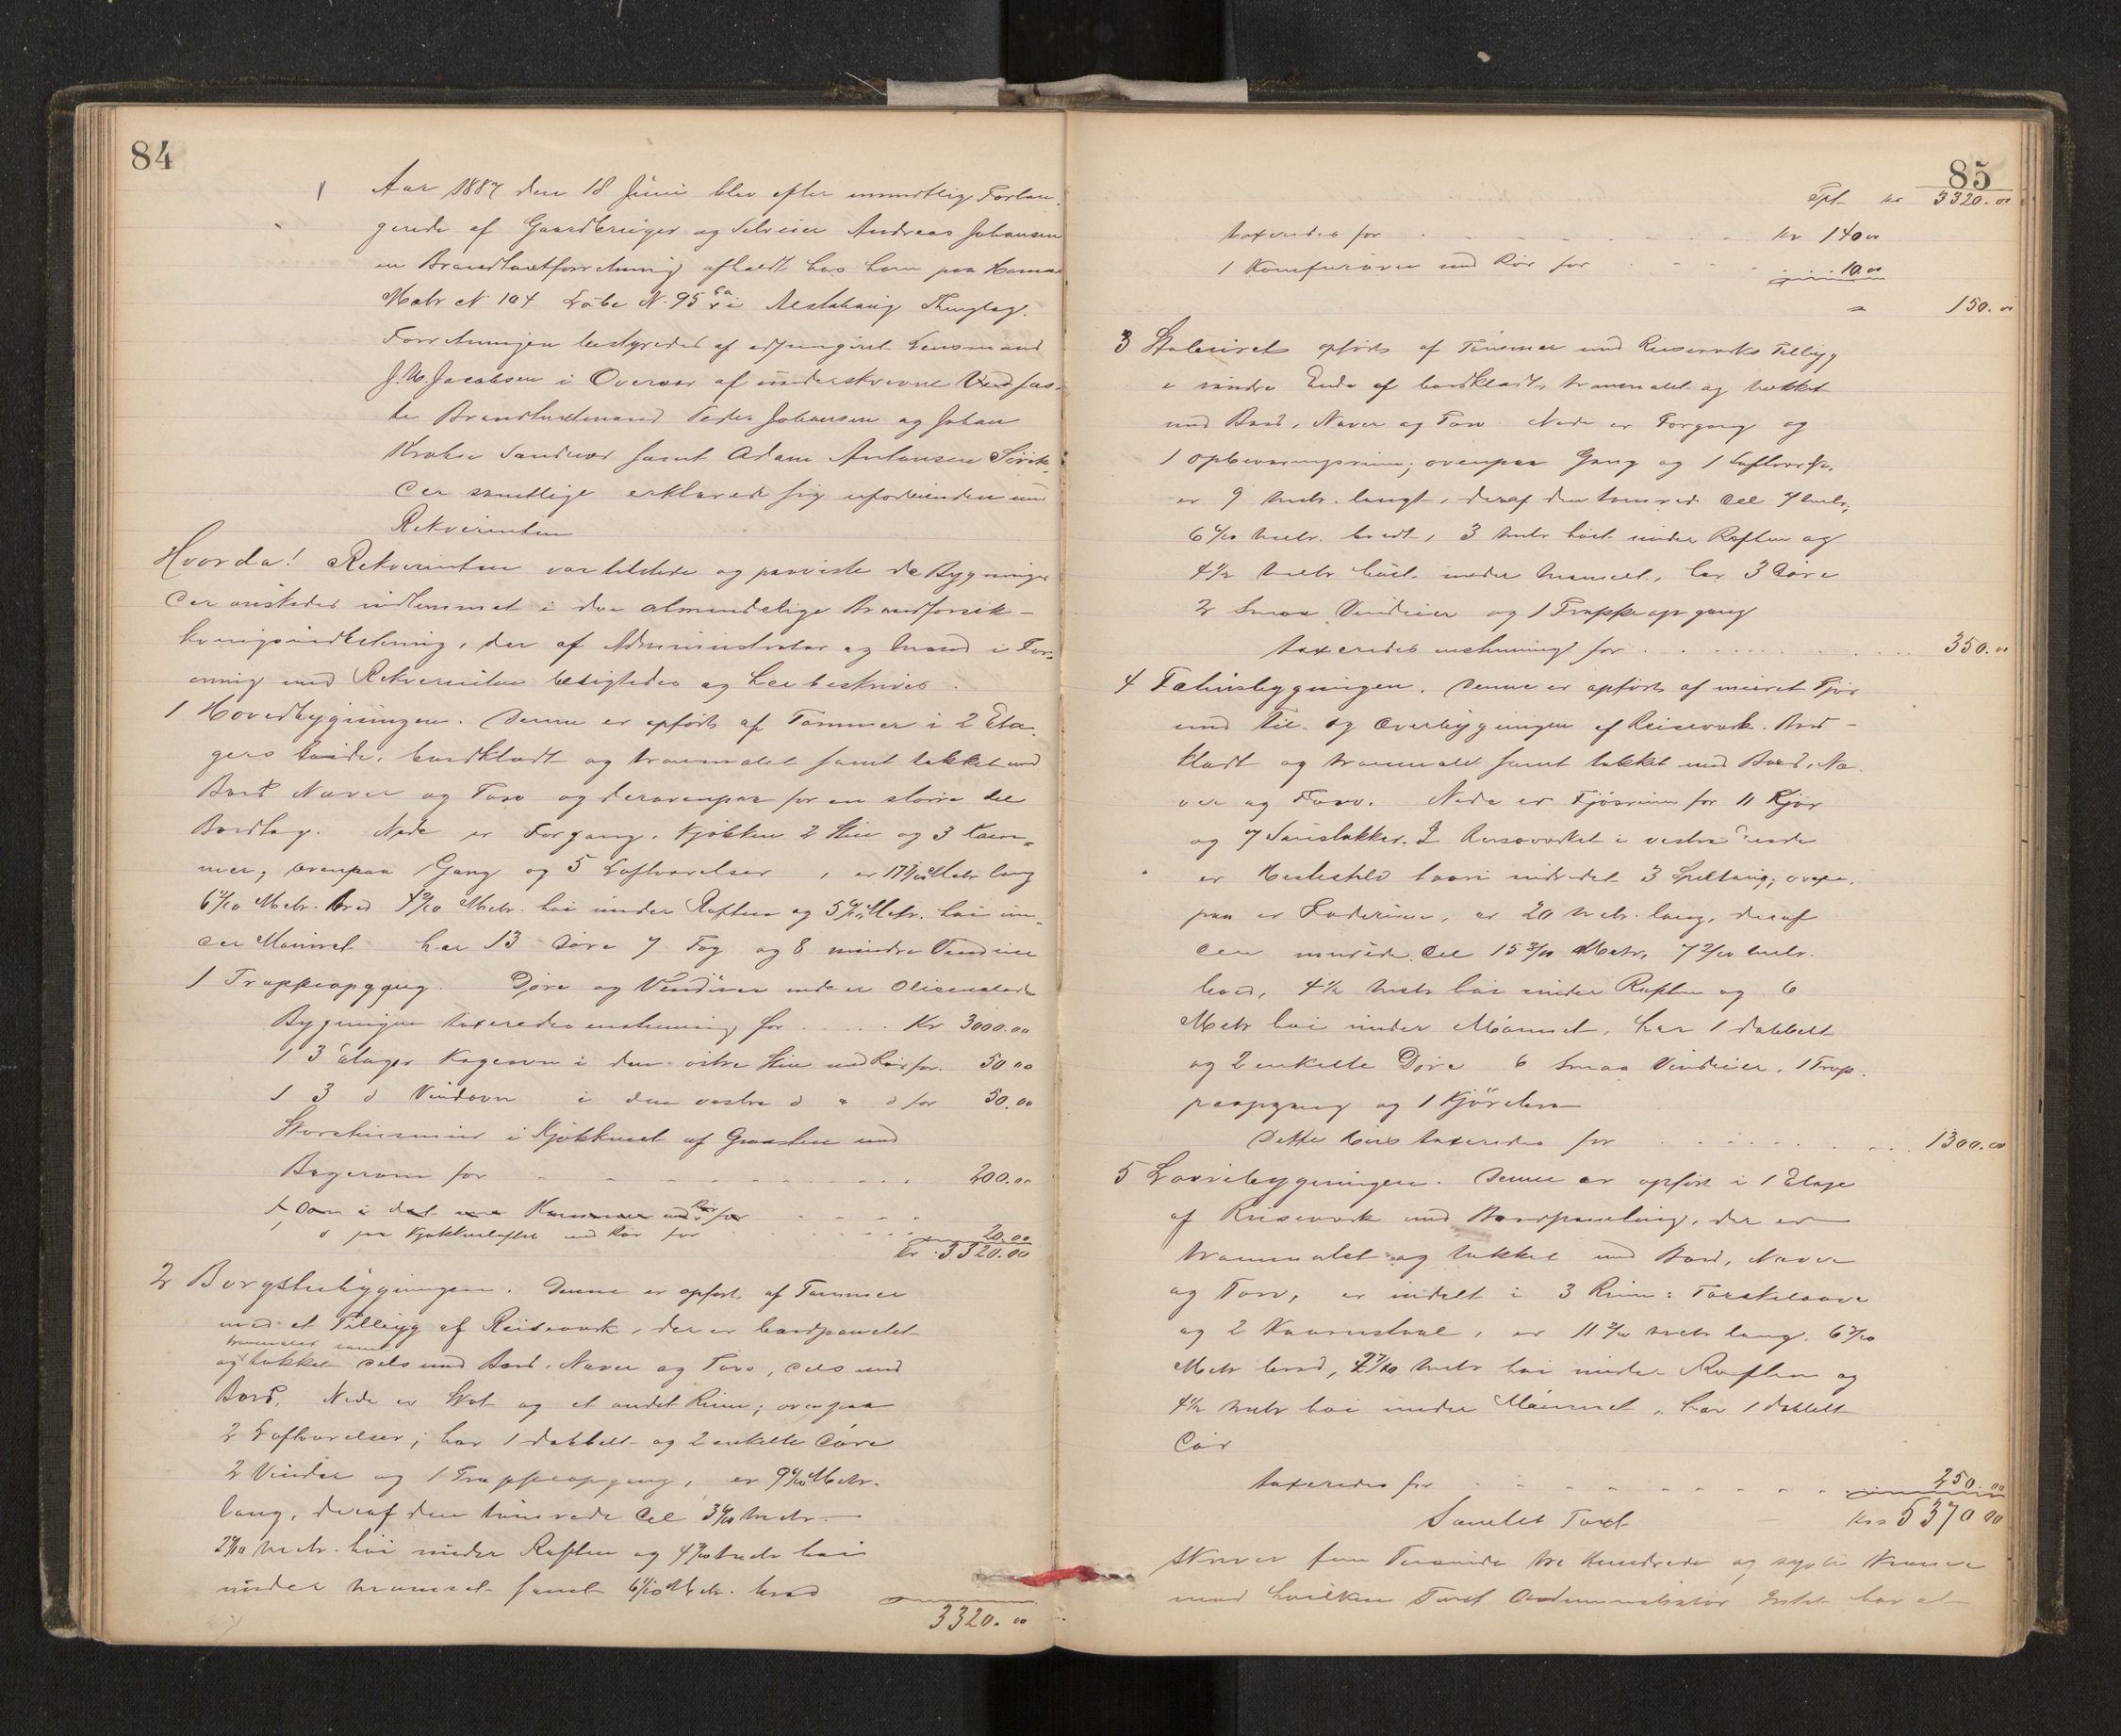 84
Aar 1887 den 18 Juni blev efter mundtlig Forlan-
gende af Gaardbruger og Selveier Andreas Johansen
en Brandtaxtforretning afholdt hos ham paa
Matr N. 104 Løbe N. 95 i Alstahaug Thinglag.
Forretningen bestyredes af adjungeret Lensmand
J. N. Jacobsen i Overvær af underskrevne fas-
te Brandtaxtmænd Peder Johansen og Johan
Sandnes samt Adam Antonsen
Der samtlige erklærede sig uforeenede med
Rekvirenten
Hvorda! Rekvirenten var tilstede og paaviste de Bygninger
der ønskedes indlemmet i den almindelige Brandforsik-
kringsindretning, der af Administrator og Mænd i For-
ening med Rekvirenten besigtedes og her beskrives.
1 Hovedbygningen. Denne er opført af Tømmer i 2 Eta-
gers Høide, bordklædt og tranmalet samt tækket med
Bord Næver og Torv og derovenpaa for en større Del
Bordtag. Nede er Forgang, Kjøkken 2 Stuer og 3 Kam-
mer, ovenpaa Gang og 5 Loftværelser, er Metr lang
Metr. bred Metr. høi under Raften og Metr. høi un-
der Mønnet har 13 Døre 7 Fag og 8 mindre Vinduer
1 Trappeopgang. Døre og Vinduer ude er Oliemalede
Bygningen taxeredes enstemmig for . . . . Kr 3000.00
1 3 Etages Kogeovn i den østre Stue med Rør for. 50.00
1 3 d Vindovn i den vestre d " d for 50.00
Skorstensmur i Kjøkkenet af Graasten med
Bagerovn for . . . . . 200.00
1 Ovn i det ene Kammer med Rør for
1 d paa Kjøkkenloftet med Rør for . . . . 20.00
Kr. 3320.00
2 Borgstubygningen. Denne er opført af Tømmer
med et Tilbyg af Reisværk, der er bordpanelet
tranmalet samt
og tækket dels med Bord, Næver og Torv, dels med
Bord. Nede er Skot og et andet Rum; ovenpaa
2 Loftværelser; har 1 dobbelt og 2 enkelte Døre
2 Vinduer og 1 Trappeopgang, er Metr.
lang, deraf den tømrede Del Metr.
Metr. høi under Raften og Metr høi
under Mønnet samt Metr. bred
3320.00
85
Tpt Kr 3320.00
taxeredes for . . . . Kr 140.00
1 Komfurovn med Rør for . . . 10.00
" 150.00
3 Stabburet opført af Tømmer med Reisværks Tilbyg
i søndre Ende af bordklædt, tranmalet og tækket
med Bord, Næver og Torv. Nede er Forgang og
1 opbevaringsrum; ovenpaa Gang og 1 Loftværelse.
er 9 Metr. langt, deraf den tømrede Del 7 Metr,
Metr. bredt, 3 Metr høit under Raften og
4½ Metr høit under Mønnet, har 3 Døre
2 Smaa Vinduer og 1 Trappeopgang
taxeredes enstemmigt for . . . . 350.00
4 Fæhusbygningen. Denne er opført af muret Fjøs
med Til- og Overbygningen af Reisværk. Bord-
klædt og tranmalet samt tækket med Bord, Næ-
ver og Torv. Nede er Fjøsrum for 11 Kjør
og 7 . I Reisværket i vestre Ende
er Hestestald hvori indredet 3 Spiltaug; oven-
paa er Foderrum, er 20 Metr. lang, deraf
den murede Del 15 Metr, Metr.
bred, 4½ Metr høi under Raften og 6
Metr høi under Mønnet, har 1 dobbelt
og 2 enkelte Døre 6 Smaa Vinduer, 1 Trap-
peopgang og 1 Kjørebro
Dette Huus taxeredes for . . . . 1300.00
5 Lovebygningen. Denne er opført i 1 Etage
af Reisværk med Bordpaneling, der er
tranmalet og tækket med Bord, Næver
og Torv, er indelt i 3 Rum: Tærskelove
og 2 Kornstaal, er Metr lang,
Metr bred, Metr høi under Raften og
4½ Metr høi under Mønnet, har 1 dobbelt
Dør
taxeredes for . . . . 250.00
Samlet Taxt Kr. 5370.00
Skriver fem Tusinde tre Hundrede og sytti Kroner
mod hvilken Taxt Administrator Intet har at